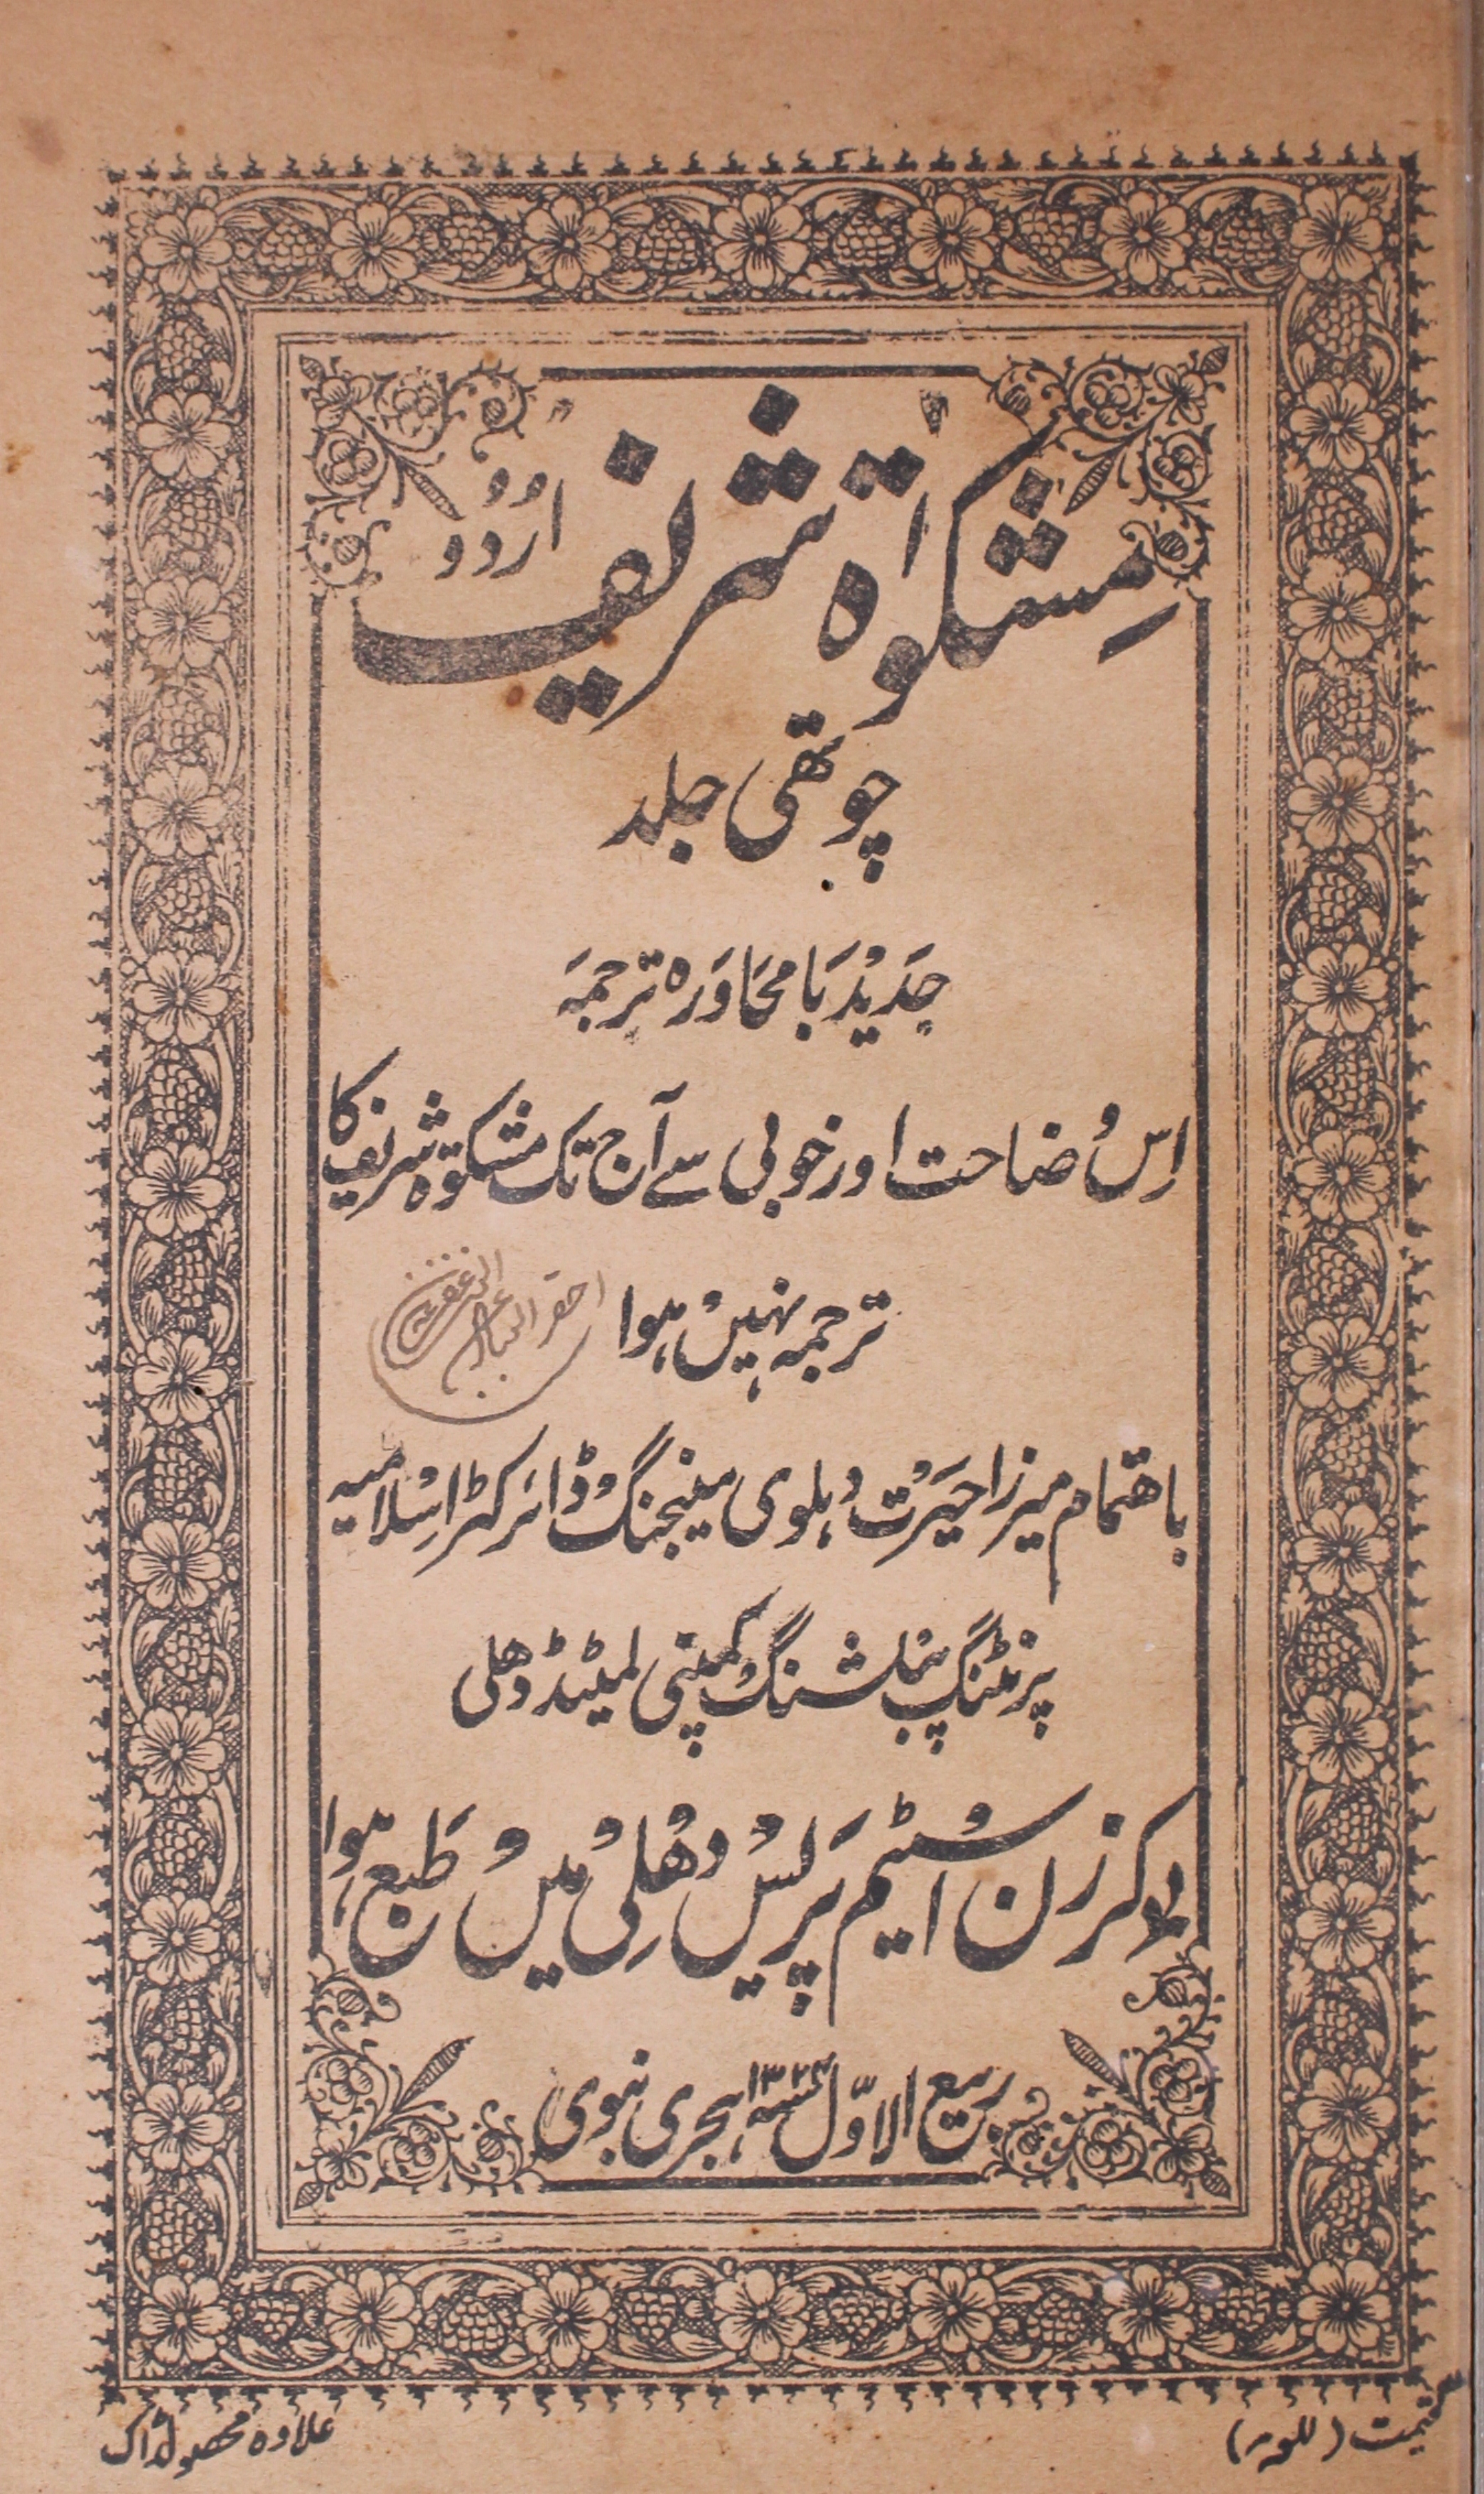 مشکوٰۃ شریف اُردُو
چوتھی جلد
جَدِیْد بَامحَاوَرہ ترجمَہ
اِسْ ضاحت اور خوبی سے آج تک مشکوۃ شریف کا
ترجمہ نہیںْ ہوا
احقر العباد
باھتمام میرزا حَیرَتْ دہلوی مینیجنگْ ڈائرکٹر اسْلامیہ
پرنٹنگ پبلشنگْ کمپنی لمیٹیڈ دھلی
کرزن اسٹیم پَریسْ دِھْلِیْ میںْ طَبع ہوا
ربیع الاوّل سنہ ۱۳۲۴ ہجری نبوی
قیمت
علاوہ محصولڈاک